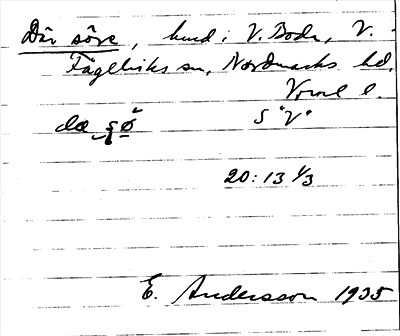 Där söre, hmd. i V. Boda, V.
Fågelviks sn, Nordmarks hd,
Vrml l.
S "V"
20:13 1/3
E. Andersson 1935